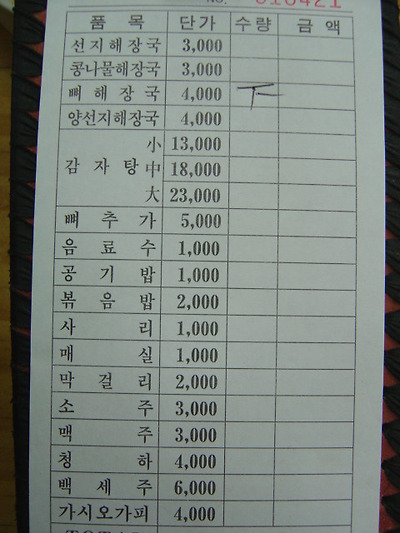 No. 016421
품 목 단가 수량 금 액
선지해장국 3,000
콩나물해장국 3,000
뼈 해 장 국 4,000 ㅜ
양선지해장국 4,000
小 13,000
감 자 탕 中 18,000
大 23,000
뼈 추 가 5,000
음 료 수 1,000
공 기 밥 1,000
볶 음 밥 2,000
사 리 1,000
매 실 1,000
막 걸 리 2,000
소 주 3,000
맥 주 3,000
청 하 4,000
백 세 주 6,000
가시오가피 4,000
TOTAL